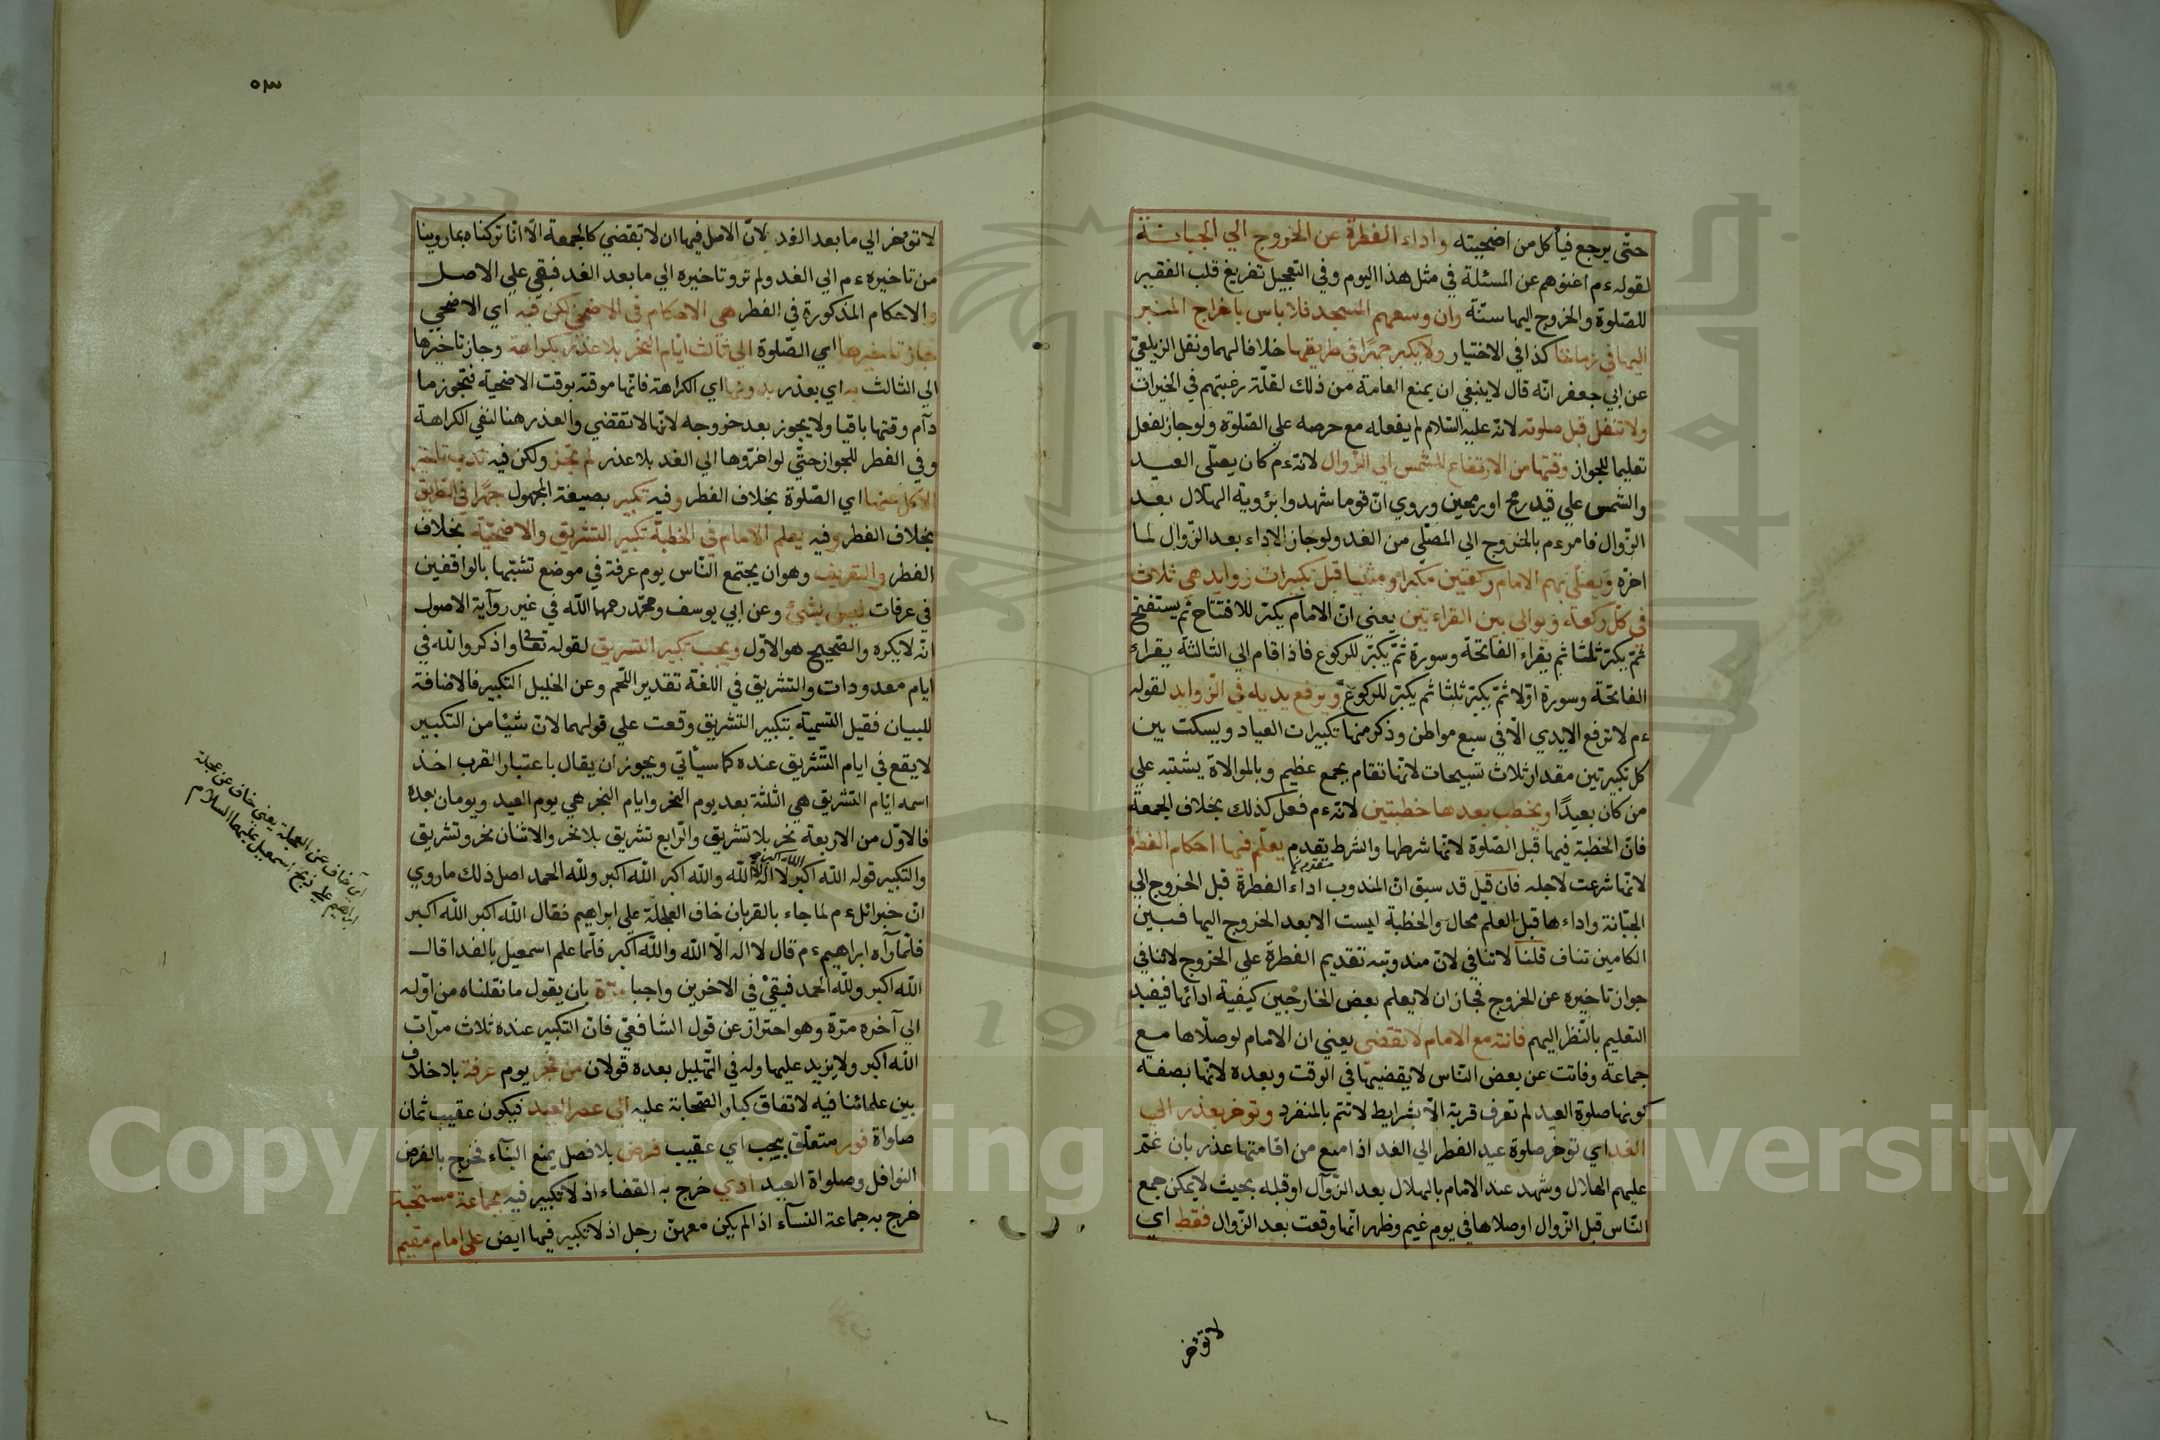 حتّى يرجع فيأكل من اضحيته واداء الفطرة عن الخروج الي الجبانة
لقوله ءم اغنوهم عن المسئلة في مثل هذا اليوم وفي التعجيل تفريغ قلب الفقير
للصّلوة والخروج اليها سنّة وان وسعهم المسجد فلا باس باخراج المنبر
اليها في زماننا كذا في الاختيار ولا يكبر جهرًا في طريقها خلافا لهما ونقل الزيلعيّ
عن ابي جعفر انّه قال لا ينبغي ان يمنع العامة من ذلك لقلّة رغبتهم في الخيرات
ولا تنفل قبل صلوته لانّه عليه السّلام لم يفعله مع حرصه علي الصّلوة ولو جاز لفعل
تعليما للجواز وقتها من الارتفاع للشمس الي الزوال لانّه ءم كان يصلّي العيد
والشمس علي قيد رمح او رمحين وروي انّ قوما شهدوا برؤوية الهلال بعد
الزوال فامر ءم بالخروج الي المصلّي من الغد ولو جاز الاداء بعد الزّوال لما
اخره ويصلّي بهم الامام ركعتين مكبّرا ومثنيا قبل تكبيرات زوايد هي ثلاث
في كلّ ركعة ويوالي بين القراءتين يعني انّ الامام يكبّر للافتتاح ثم يستفتح
ثمّ يكبّر ثلثا ثم يقراء الفاتحة وسورة ثمّ يكبّر للركوع فاذا قام الي الثالثة يقراء
الفاتحة وسورة اوّلا ثمّ يكبّر ثلثا ثم يكبّر للركوع ويرفع يديه في الزوايد لقوله
ءم لا ترفع الايدي الّا في سبع مواطن وذكر منها تكبيرات العياد ويسكت بين
كلّ تكبيرتين مقدار ثلاث تسبيحات لانّها تقام بجمع عظيم وبالموالاة يشتبه علي
من كان بعيدًا ويخطب بعدها خطبتين لانّه ءم فعل كذلك بخلاف الجمعة
فانّ الخطبة فيها قبل الصّلوة لانّها شرطها والشرط يقدم يعلّم فيها احكام الفطرة
لانّها شرعت لاجله فان قيل قد سبق انّ المندوب اداء الفطرة قبل الخروج الي
الجبّانة واداءها قبل العلم محال والخطبة ليست الا بعد الخروج اليها فبين
الكلامين تناف قلنا لا تنافي لانّ مندوبيّة تقديم الفطرة علي الخروج لا تنافي
جواز تاخيره عن الخروج فجاز ان لا يعلم بعض الخارجين كيفية ادائها فيفيد
التعليم بالنّظر اليهم فانته مع الامام لا تقضي يعني ان الامام لو صلّاها مع
جماعة وفاتت عن بعض النّاس لا يقضيها في الوقت وبعده لانّها بصفة
كونها صلوة العيد لم تعرف قربة الّا بشرايط لا تتم بالمنفرد وتؤخر بعذر الي
الغد اي تؤخر صلوة عيد الفطر الي الغد اذا منع من اقامتها عذر بان غمّ
عليهم الهلال وشهد عند الامام بالهلال بعد الزّوال او قبله بحيث لا يمكن جمع
النّاس قبل الزّوال او صلاها في يوم غيم وظهر انّها وقعت بعد الزّوال فقط اي
لا تؤخر
٥٣
لا تؤخر الي ما بعد الغد لانّ الاصل فيها ان لا تقضي كالجمعة الّا انّا تركناه بما روينا
من تاخيره ءم الي الغد ولم تروتاخيره الي ما بعد الغد فبقي علي الاصل
والاحكام المذكورة في الفطر هي الاحكام في الاضحي لكن فيه اي الاضحي
جاز تاخيرها اي الصّلوة الي ثالث ايّام النحر بلا عذر بكراهة وجاز تاخيرها
الي الثالث به اي بعذر بدونها اي الكراهة فانّها موقتة بوقت الاضحية فتجوز ما
دام وقتها باقيا ولا يجوز بعد خروجه لانّها لا تقضي والعذر هنا لنفي الكراهة
وفي الفطر للجواز حتّي لو اخّروها الي الغد بلا عذر لم يجز ولكن فيه ندب تاخير
الاكل عنها اي الصّلوة بخلاف الفطر وفيه تكبير بصيغة المجهول جهرًا في الطريق
بخلاف الفطر وفيه يعلم الامام في الخطبة تكبير التشريق والاضحيّة بخلاف
الفطر والتعريف وهو ان يجتمع النّاس يوم عرفة في موضع تشبّها بالواقفين
في عرفات ليس بشئ وعن ابي يوسف ومحمّد رحمهما الله في غير رواية الاصول
انّه لا يكره والصّحيح هو الاوّل ويجب تكبير التشريق لقوله تعا واذكروا الله في
ايام معدودات والتشريق في اللغة تقديد اللّحم وعن الخليل التكبير فالاضافة
للبيان فقيل التّسمية بتكبير التشريق وقعت علي قولهما لانّ شيًا من التكبير
لا يقع في ايام التّشريق عنده كما سيأتي ويجوز ان يقال باعتبار القرب اخذ
اسمه ايّام التشريق هي الثلثة بعد يوم النحر وايام النحر هي يوم العيد ويومان بعده
فالاوّل من الاربعة نحر بلا تشريق والرّابع تشريق بلا نحر والاثنان نحر وتشريق
والتكبير قوله الله اكبر الله اكبر لا اله الّا الله والله اكبر الله اكبر ولله الحمد اصل ذلك ما روي
انّ جبرائل ءم لما جاء بالقربان خاف العجلة علي ابراهيم فقال الله اكبر الله اكبر
فلمّا رآه ابراهيم ءم قال لا اله الّا الله والله اكبر فلمّا علم اسمعيل بالفدا قال
الله اكبر ولله الحمد فبقيْ في الاخرين واجبا مرّة بان يقول ما نقلناه من اوّله
الي آخره مرّة وهو احتراز عن قول الشافعيّ فانّ التكبير عنده ثلاث مرّات
الله اكبر ولا يزيد عليها وله في التّهليل بعده قولان من فجر يوم عرفة بلا خلاف
بين علمائنا فيه لاتفاق كبار الصّحابة عليه الي عصر العيد فيكون عقيب ثمان
صلواة فور متعلّق بيجب اي عقيب فرض بلا فصل يمنع البناء فخرج بالفرض
النوافل وصلواة العيد ادي خرج به القضاء اذ لا تكبير فيه بجماعة مستحبة
خرج به جماعة النسآء اذا لم يكن معهنّ رجل اذ لا تكبير فيها ايض علي امام مقيم
اي خاف عن العجلة يعني خاف عن عجلة
ابراهيم علي ذبح اسمعيل عليهما السلام
Copyright © King Saud University